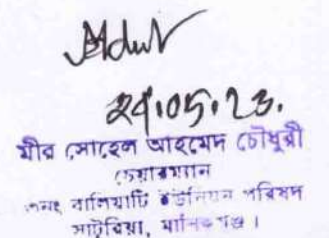 ২৪.০৫.২৩.
মীর সোহেল আহমেদ চৌধুরী
চেয়ারম্যান
বালিয়াটি ইউনিয়ন পরিষদ
সাটুরিয়া, মানিকগঞ্জ।